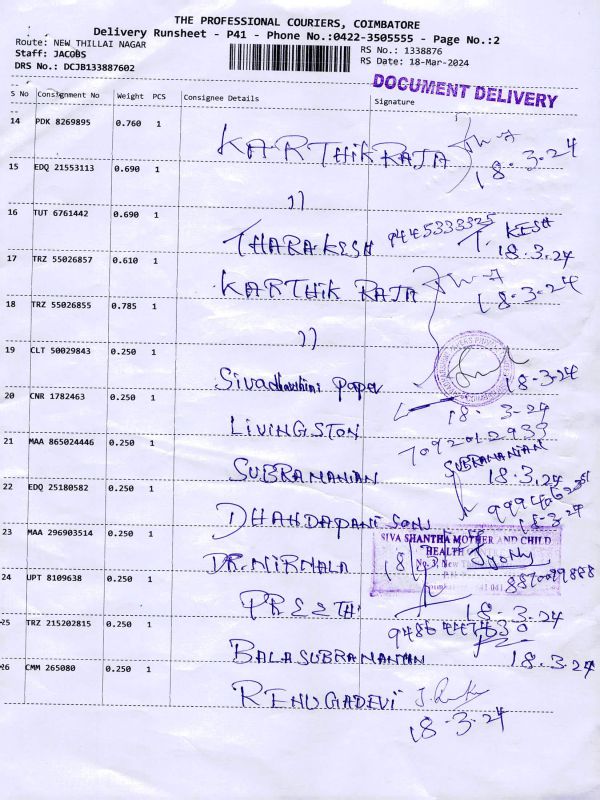 THE PROFESSIONAL COURIERS, COIMBATORE
Delivery Runsheet - P41 - Phone No.:0422-3505555 - Page No.:2
Route: NEW THILLAI NAGAR
RS No.: 1338876
Staff: JACOBS
RS Date: 18-Mar-2024
DRS No.: DCJB133887602
DOCUMENT DELIVERY
S No Consignment No Weight PCS Consignee Details Signature
14 PDK 8269895 0.760 1 KARTHIK RAJA 18.3.24
15 EDQ 21553113 0.690 1 11
16 TUT 6761442 0.690 1 THARAKESH 9445333325 T. KESH 18.3.24
17 TRZ 55026857 0.610 1 KARTHIK RAJA 18.3.24
18 TRZ 55026855 0.785 1 11
19 CLT 50029843 0.250 1 Sivadharshini papa 18.3.24
20 CNR 1782463 0.250 1 LIVINGSTON 18.3-24
7092012933
21 MAA 865024446 0.250 1 SUBRAMANIAN SUBRAMANIAN 18.3.24
22 EDQ 25180582 0.250 1 DHANDAPANI SONS 18-3-24
SIVA SHANTHA MOTHER AND CHILD
HEALTH
No. 3, New
23 MAA 296903514 0.250 1 DR.NIRMALA
24 UPT 8109638 0.250 1 PREETHI 18.3.24
25 TRZ 215202815 0.250 1 BALASUBRAMANIAN 18.3.24
26 CMM 265080 0.250 1 RENUGADEVI 18-3-24